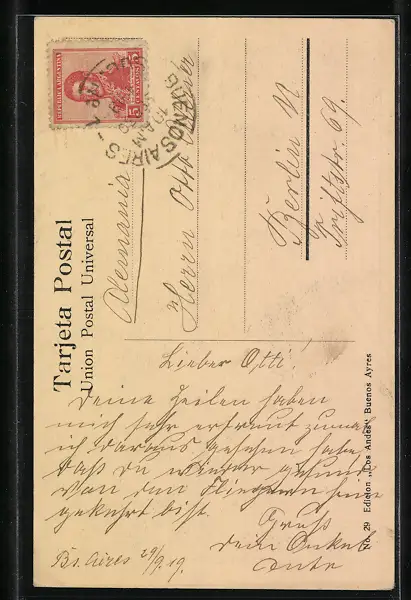 Tarjeta Postal
Union Postal Universal
REPUBLICA ARGENTINA
5 CENTAVOS 5
BUENOS AIRES
Alemania
Herrn Otto
Berlin N
Triftstr. 69.
Lieber Otti!
Deine Zeilen haben
mich sehr erfreut zumal
ich daraus gesehen habe,
daß du wieder gesund
von den Fliegern heim
gekehrt bist.
Gruß
dein Onkel
Bs. Aires 29/9.19.
No. 29 Edicion „Los Andes“ Buenos Ayres